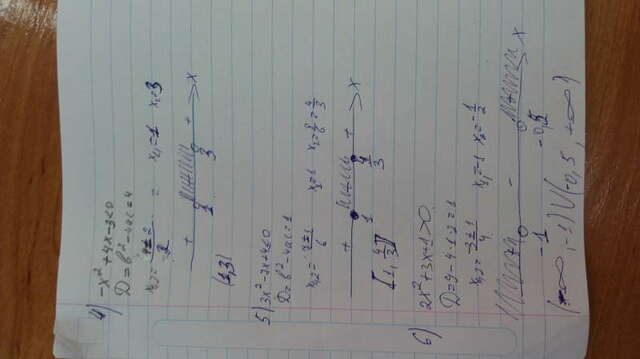 4) -x² + 4x - 3 < 0
D = b² - 4ac = 4
x₁,₂ = (4 ± 2)/2 = x₁ = 1 x₂ = 3
+ + x
1 3
(1, 3)
5) 3x² - 7x + 4 ≤ 0
D = b² - 4ac = 1
x₁,₂ = (7 ± 1)/6 x₁ = 1 x₂ = 8/6 = 4/3
+ - + x
1 4/3
[1, 4/3]
6) 2x² + 3x + 1 > 0
D = 9 - 4·1·2 = 1
x₁,₂ = (-3 ± 1)/4 x₁ = -1 x₂ = -1/2
+ - x
-1 -0,5
(-∞, -1) ∪ (-0,5, +∞)